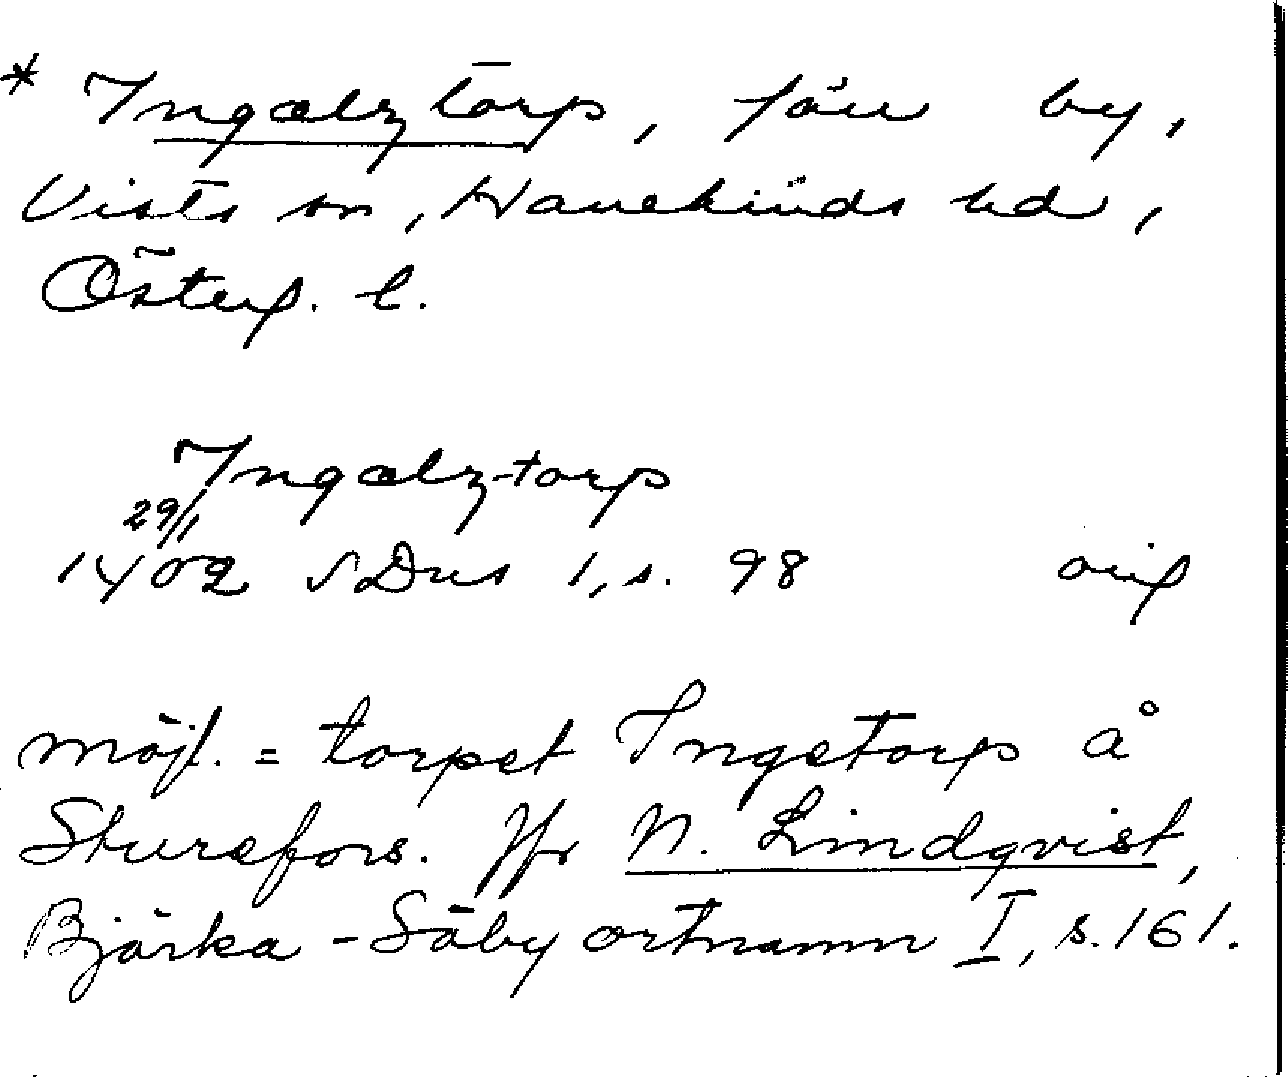 * Ingælztorp, förr by,
Vists sn, Hanekinds hd,
Österg. l.
Ingælz-torp
29/1
1402 SDns 1, s. 98 orig
möjl. = torpet Ingetorp å
Sturefors. Jfr N. Lindqvist,
Bjärka-Säby ortnamn I, s. 161.